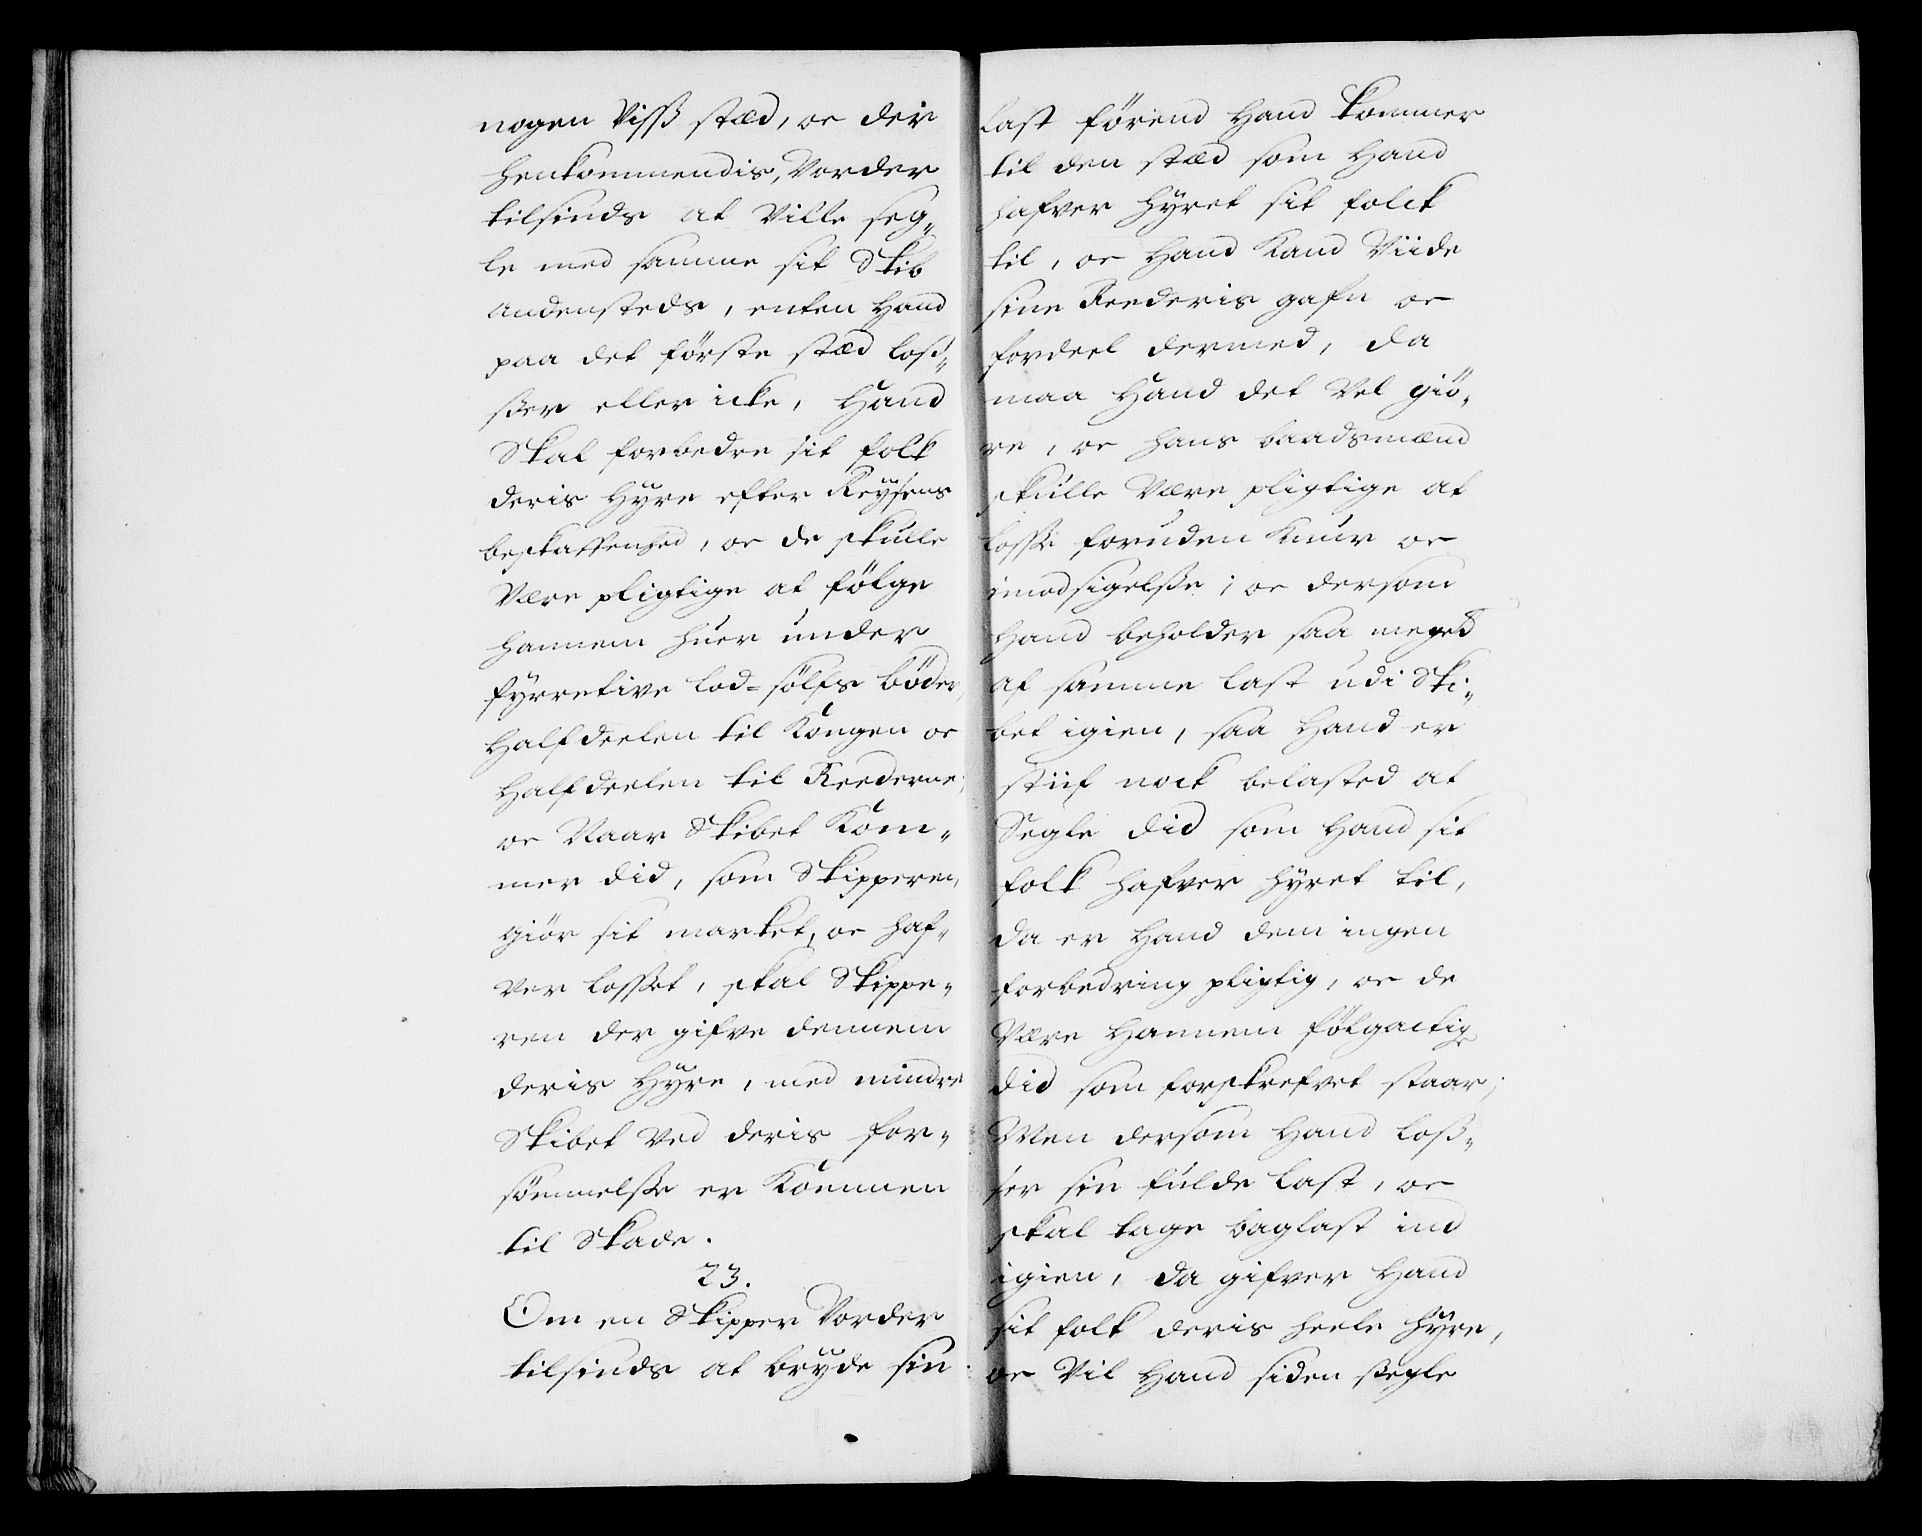 nogen Viss stæd, oc der
henkommendis, Vorder
tilsinds at Ville seg„
le med samme sit Skib
andensteds, enten Hand
paa det förste stæd loss„
ser eller icke, Hand
Skal forbedre sit folk
deris Hyre efter Reysens
beskaffenhed, oc de skulle
Være pligtige at fölge
hannem huer under
fyrretive lod=sölfs böder,
Halfdeelen til Kongen oc
Halfdeelen til Reederne;
oc Naar Skibet Kom„
mer did, som Skipperen
giör sit market, oc haf„
ver losset, skal Skippe„
ren der gifve dennem
deris Hyre, med mindre
Skibet Ved deris for„
sömmelsse er Kommen
til Skade.
23.
Om en Skipper Vorder
tilsinds at bryde sin
Last förend Hand Kommer
til den stæd som Hand
hafver hyret sit folck
til, oc Hand Kand Viide
sine Reederis gafn oc
fordeel dermed, da
maa Hand det Vel giö„
re, oc hans baadsmænd
skulle Være pligtige at
losse foruden Knur oc
imodsigelsse; oc dersom
Hand beholder saa meged
af samme last udi Ski„
bet igien, saa Hand er
stiif nock belasted at
Segle did som Hand sit
folk hafver hyret til,
da er Hand dem ingen
forbedring pligtig, oc de
Være Hannem fölgactige
did som forskrefvet staar;
Men dersom Hand loss„
ser sin fulde last, oc
skal tage baglast ind
igien, da gifver Hand
sit folk deris heele hyre,
oc Vil Hand siden segle